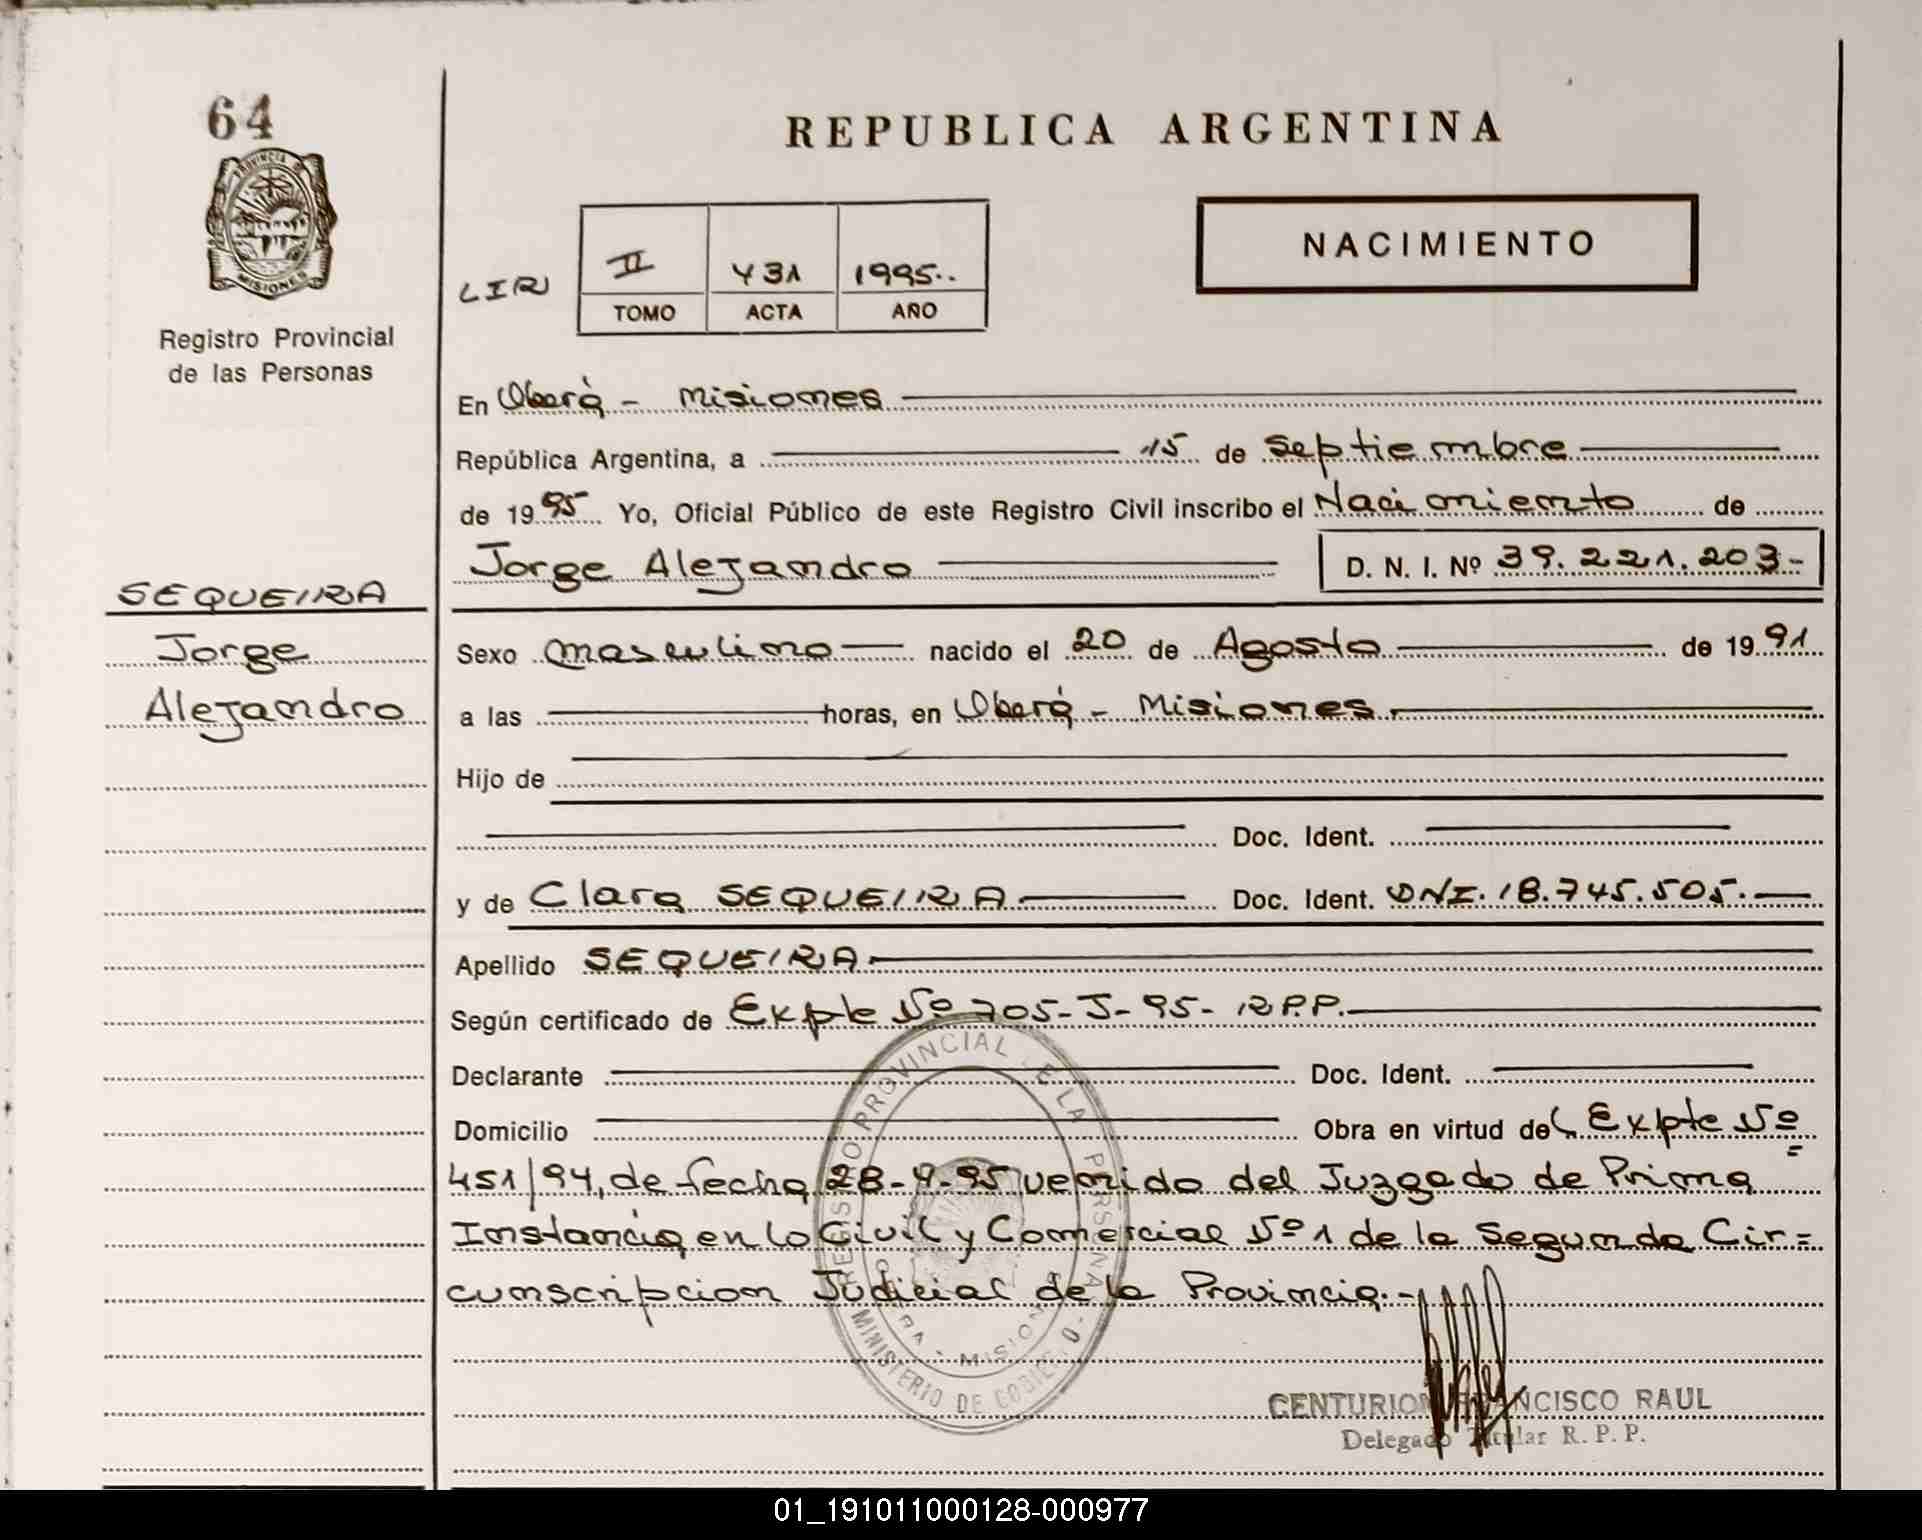 64
PROVINCIA DE
MISIONES
Registro Provincial
de las Personas
REPUBLICA ARGENTINA
NACIMIENTO
LIR
II 431 1995..
TOMO ACTA AÑO
En Oberá - Misiones
República Argentina, a 15 de septiembre
de 1995 Yo, Oficial Público de este Registro Civil inscribo el Nacimiento de
Jorge Alejandro D. N. I. Nº 39.221.203-
SEQUEIRA
Jorge
Alejandro
Sexo masculino nacido el 20 de Agosto de 1991
a las horas, en Oberá - Misiones.
Hijo de
Doc. Ident.
y de Clara SEQUEIRA Doc. Ident. DNI. 18.745.505.
Apellido SEQUEIRA
Según certificado de Expte Nº 705-J-95- R.P.P.
Declarante Doc. Ident.
Domicilio Obra en virtud del Expte Nº
451/94, de fecha 28-4-95 venido del Juzgado de Prima
Instancia en lo Civil y Comercial Nº 1 de la Segunda Cir=
cunscripcion Judicial de la Provincia.-
PROVINCIAL E LA PERSONA
MINISTERIO DE GOBIE O
MISION
CENTURION FRANCISCO RAUL
Delegado Titular R. P. P.
01_191011000128-000977